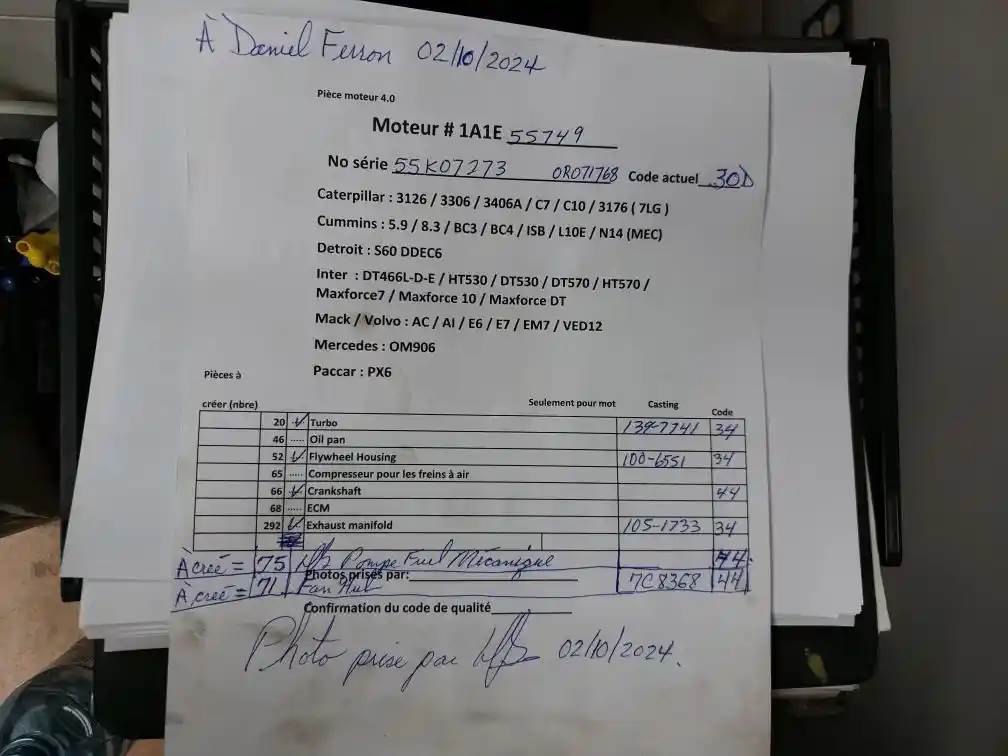 À Daniel Ferron 02/10/2024
Pièce moteur 4.0
Moteur # 1A1E 55749
No série 55K07273 0R071768 Code actuel 30D
Caterpillar : 3126 / 3306 / 3406A / C7 / C10 / 3176 ( 7LG )
Cummins : 5.9 / 8.3 / BC3 / BC4 / ISB / L10E / N14 (MEC)
Detroit : S60 DDEC6
Inter : DT466L-D-E / HT530 / DT530 / DT570 / HT570 /
Maxforce7 / Maxforce 10 / Maxforce DT
Mack / Volvo : AC / AI / E6 / E7 / EM7 / VED12
Mercedes : OM906
Paccar : PX6
Pièces à
créer (nbre) Seulement pour mot Casting Code
20 ✓ Turbo 139-7741 34
46 ..... Oil pan
52 ✓ Flywheel Housing 100-6551 34
65 ..... Compresseur pour les freins à air
66 ✓ Crankshaft 44
68 ..... ECM
292 ✓ Exhaust manifold 105-1733 34
À créé = 75 Pompe Fuel Mécanique 44
Photos prises par:
À créé = 71 Fan Hub 7C8368 44
Confirmation du code de qualité
Photo prise par 02/10/2024.